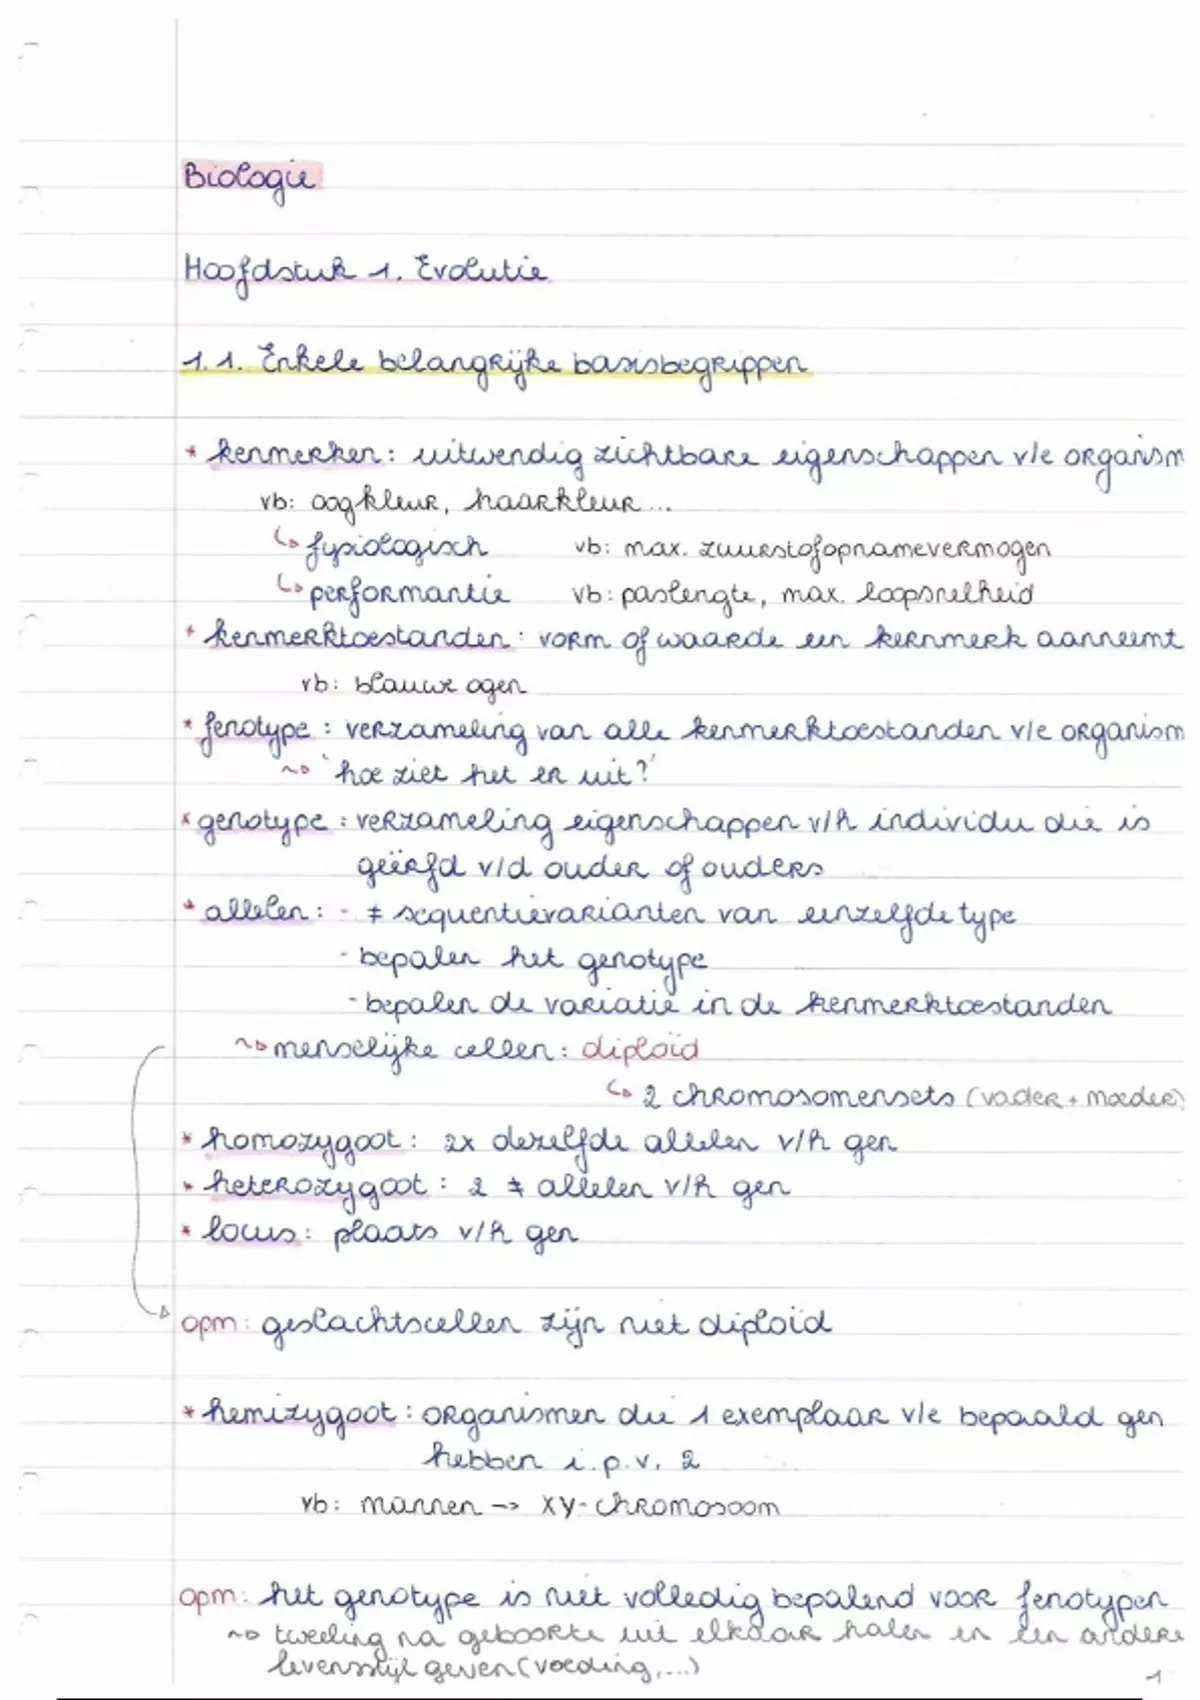 Biologie
Hoofdstuk 1. Evolutie
1.1. Enkele belangrijke basisbegrippen
* kenmerken: uitwendig zichtbare eigenschappen v/e organism
vb: oogkleur, haarkleur...
↳ fysiologisch vb: max. zuurstofopnamevermogen
↳ performantie vb: paslengte, max. loopsnelheid
* kenmerktoestanden: vorm of waarde een kernmerk aanneemt
vb: blauwe ogen
* fenotype: verzameling van alle kenmerktoestanden v/e organism
~> 'hoe ziet het er uit?'
* genotype: verzameling eigenschappen v/h individu die is
geërfd v/d ouder of ouders
* allelen: - ≠ sequentievarianten van eenzelfde type
- bepalen het genotype
- bepalen de variatie in de kenmerktoestanden
~> menselijke cellen: diploïd
↳ 2 chromosomensets (vader + moeder)
* homozygoot: 2x dezelfde allelen v/h gen
* heterozygoot: 2 ≠ allelen v/h gen
* locus: plaats v/h gen
opm: geslachtscellen zijn niet diploïd
* hemizygoot: organismen die 1 exemplaar v/e bepaald gen
hebben i.p.v. 2
vb: mannen -> XY-chromosoom
opm: het genotype is niet volledig bepalend voor fenotypen
~> tweeling na geboorte uit elkaar halen en een andere
levensstijl geven (voeding,...)
1